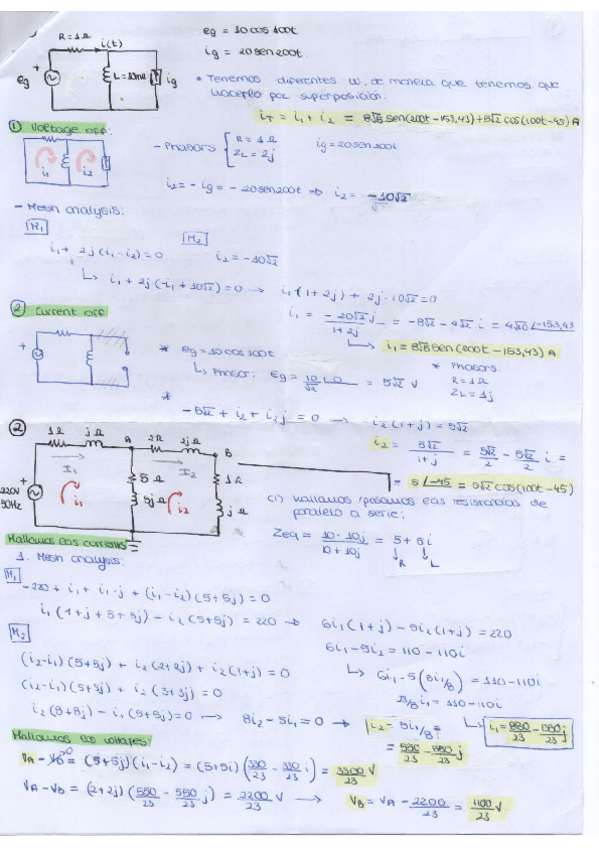 R = 1Ω
i(t)
eg
L = 10mH
ig
eg = 10 cos 100t
ig = 20 sen 200t
• Tenemos diferentes ω, de manera que tenemos que
hacerlo por superposición:
iT = i1 + i2 = 8√5 sen(200t - 153,43) + 5√2 cos(100t - 45) A
① Voltage off:
i1 i2
- Phasors { R = 1Ω
ZL = 2j
ig = 20 sen 200t
i2 = - ig = - 20 sen 200t ⇒ i2 = -10√2
- Mesh analysis:
M1
i1 + 2j (i1 - i2) = 0
M2
i2 = -10√2
↳ i1 + 2j (i1 + 10√2) = 0 → i1 (1 + 2j) + 2j · 10√2 = 0
i1 = -20√2 j / 1 + 2j = -8√2 - 4√2 i = 4√10 ∠-153,43
↳ i1 = 8√5 sen(200t - 153,43) A
② Current off
* eg = 10 cos 100t
↳ Phasor: eg = 10/√2 ∠0 = 5√2 V
* Phasors:
R = 1Ω
ZL = 1j
* -5√2 + i2 + i2 j = 0 → i2 (1 + j) = 5√2
i2 = 5√2 / 1 + j = 5√2/2 - 5√2/2 i =
= 5 ∠-45 = 5√2 cos(100t - 45)
②
1Ω jΩ A 2Ω 2jΩ B
I1 I2
220V
50Hz
i1 5Ω 5jΩ i2 1Ω jΩ
c) Hallamos/pasamos las resistencias de
paralelo a serie:
Zeq = 10 · 10j / 10 + 10j = 5 + 5i
R L
Hallamos las currents
1. Mesh analysis:
M1
-220 + i1 + i1 · j + (i1 - i2)(5 + 5j) = 0
i1 (1 + j + 5 + 5j) - i2 (5 + 5j) = 220 → 6i1 (1 + j) - 5i2 (1 + j) = 220
6i1 - 5i2 = 110 - 110i
M2
↳ 6i1 - 5(5i1/8) = 110 - 110i
(i2 - i1)(5 + 5j) + i2 (2 + 2j) + i2 (1 + j) = 0
(i2 - i1)(5 + 5j) + i2 (3 + 3j) = 0
i2 (8 + 8j) - i1 (5 + 5j) = 0 → 8i2 - 5i1 = 0 → i2 = 5i1/8 =
= 550/23 - 550/23 j
i1 = 880/23 - 880/23 j
Hallamos los voltajes:
VA - V0 = (5 + 5j)(i1 - i2) = (5 + 5i)(330/23 - 330/23 i) = 3300/23 V
VA - VB = (2 + 2j)(550/23 - 550/23 j) = 2200/23 V → VB = VA - 2200/23 = 1100/23 V